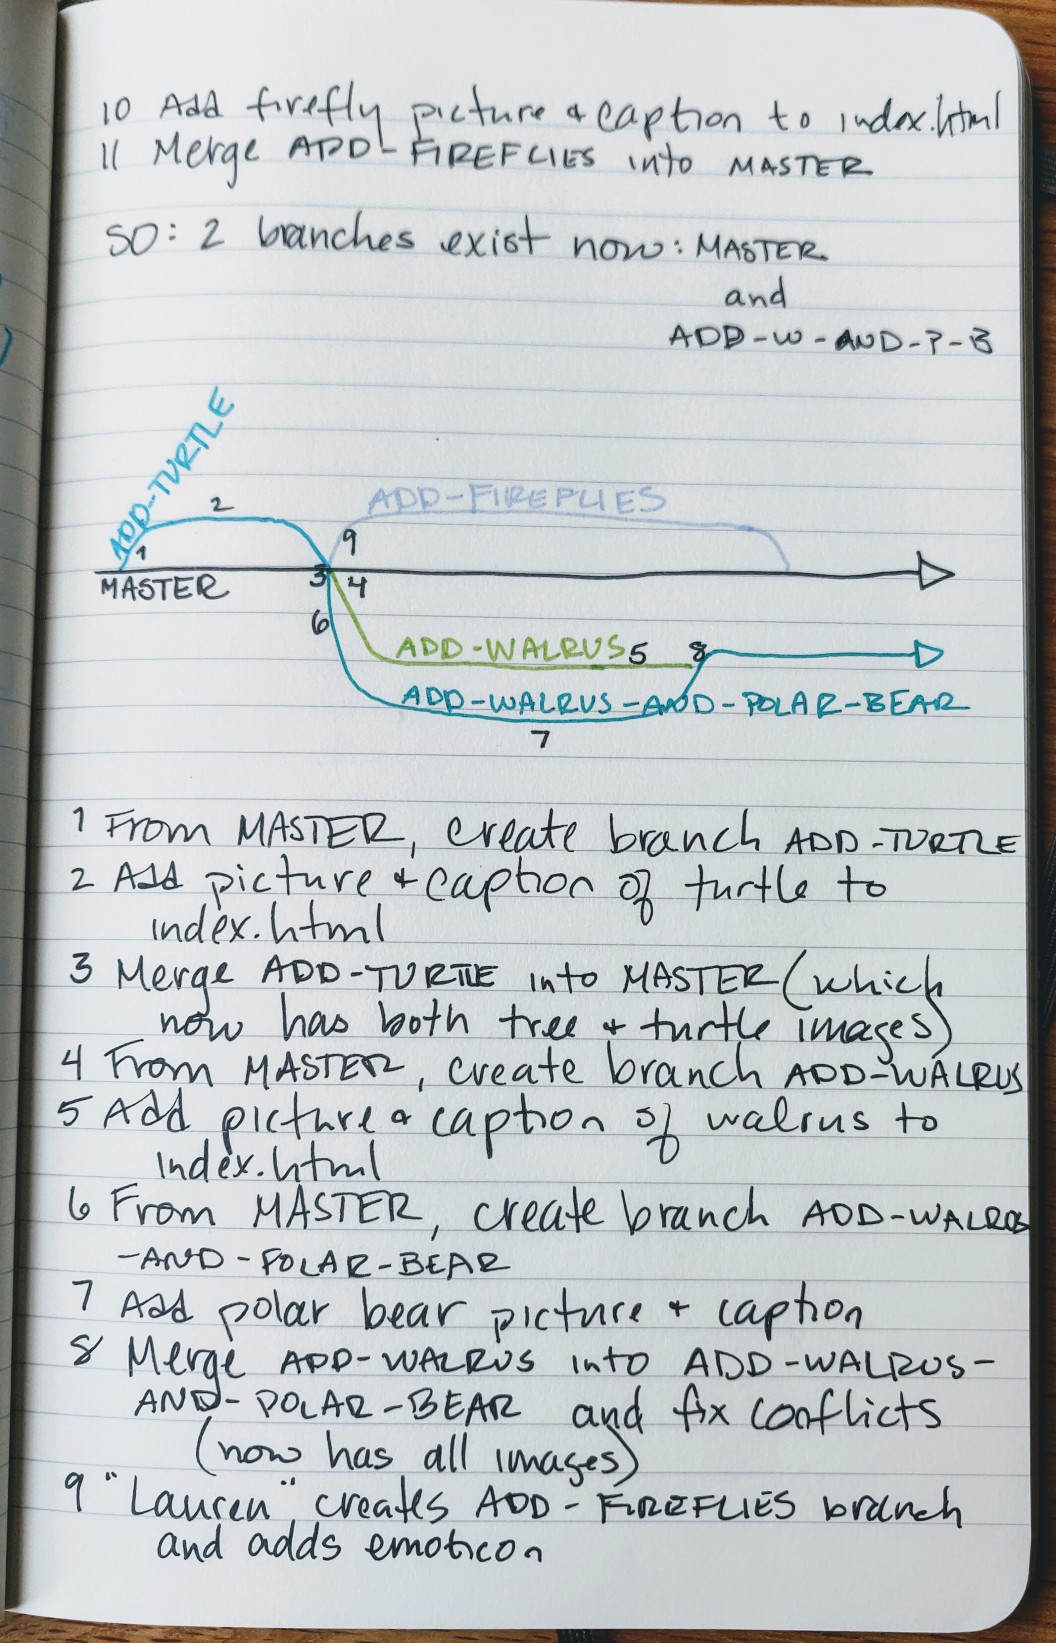 10 Add firefly picture & caption to index.html
11 Merge ADD-FIREFLIES into MASTER
SO: 2 branches exist now: MASTER
and
ADD-W-AND-P-B
ADD-TURTLE
2
ADD-FIREFLIES
1
9
MASTER
3
4
6
ADD-WALRUS
5
8
ADD-WALRUS-AND-POLAR-BEAR
7
1 From MASTER, create branch ADD-TURTLE
2 Add picture & caption of turtle to
index.html
3 Merge ADD-TURTLE into MASTER (which
now has both tree & turtle images)
4 From MASTER, create branch ADD-WALRUS
5 Add picture & caption of walrus to
index.html
6 From MASTER, create branch ADD-WALRUS
-AND-POLAR-BEAR
7 Add polar bear picture & caption
8 Merge ADD-WALRUS into ADD-WALRUS-
AND-POLAR-BEAR and fix conflicts
(now has all images)
9 "Lauren" creates ADD-FIREFLIES branch
and adds emoticon